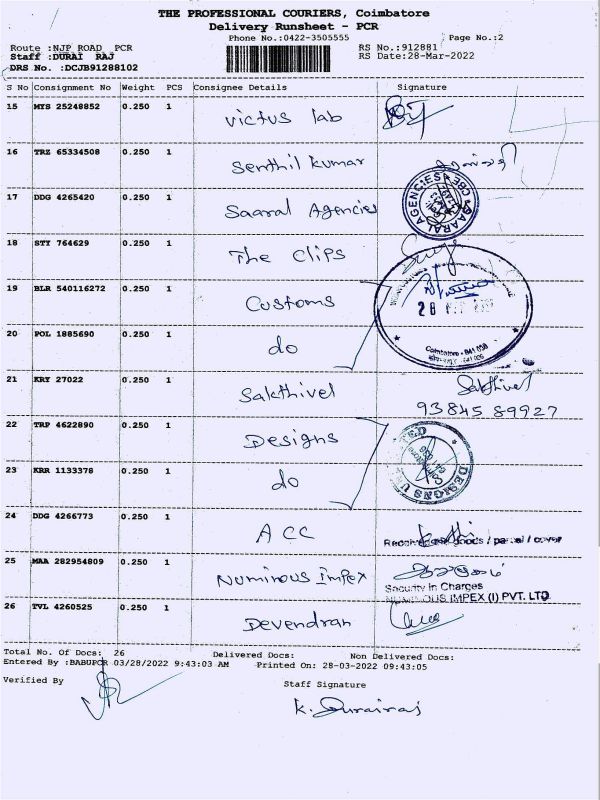 THE PROFESSIONAL COURIERS, Coimbatore
Delivery Runsheet - PCR
Phone No.:0422-3505555
Page No.:2
Route :NJP ROAD PCR
RS No.:912881
Staff :DURAI RAJ
RS Date:28-Mar-2022
DRS No. :DCJB91288102
S No Consignment No Weight PCS Consignee Details Signature
15 MTS 25248852 0.250 1 Victus lab
16 TRZ 65334508 0.250 1 Senthil kumar
17 DDG 4265420 0.250 1 Saaral Agencies
SAARAL AGENCIES CBE
18 STY 764629 0.250 1 The Clips
19 BLR 540116272 0.250 1 Customs
28
20 POL 1885690 0.250 1 do
Coimbatore - 641 018
21 KRY 27022 0.250 1 Sakthivel Sakthivel
93845 89927
22 TRP 4622890 0.250 1 Designs
23 KRR 1133378 0.250 1 do
DESIGNS
24 DDG 4266773 0.250 1 ACC
goods / parcel / cover
25 MAA 282954809 0.250 1 Numinous Impex
Security in Charges
NUMINOUS IMPEX (I) PVT. LTD
26 TVL 4260525 0.250 1 Devendran
Total No. Of Docs: 26 Delivered Docs: Non Delivered Docs:
Entered By :BABUPCR 03/28/2022 9:43:03 AM Printed On: 28-03-2022 09:43:05
Verified By
Staff Signature
K. Durairaj